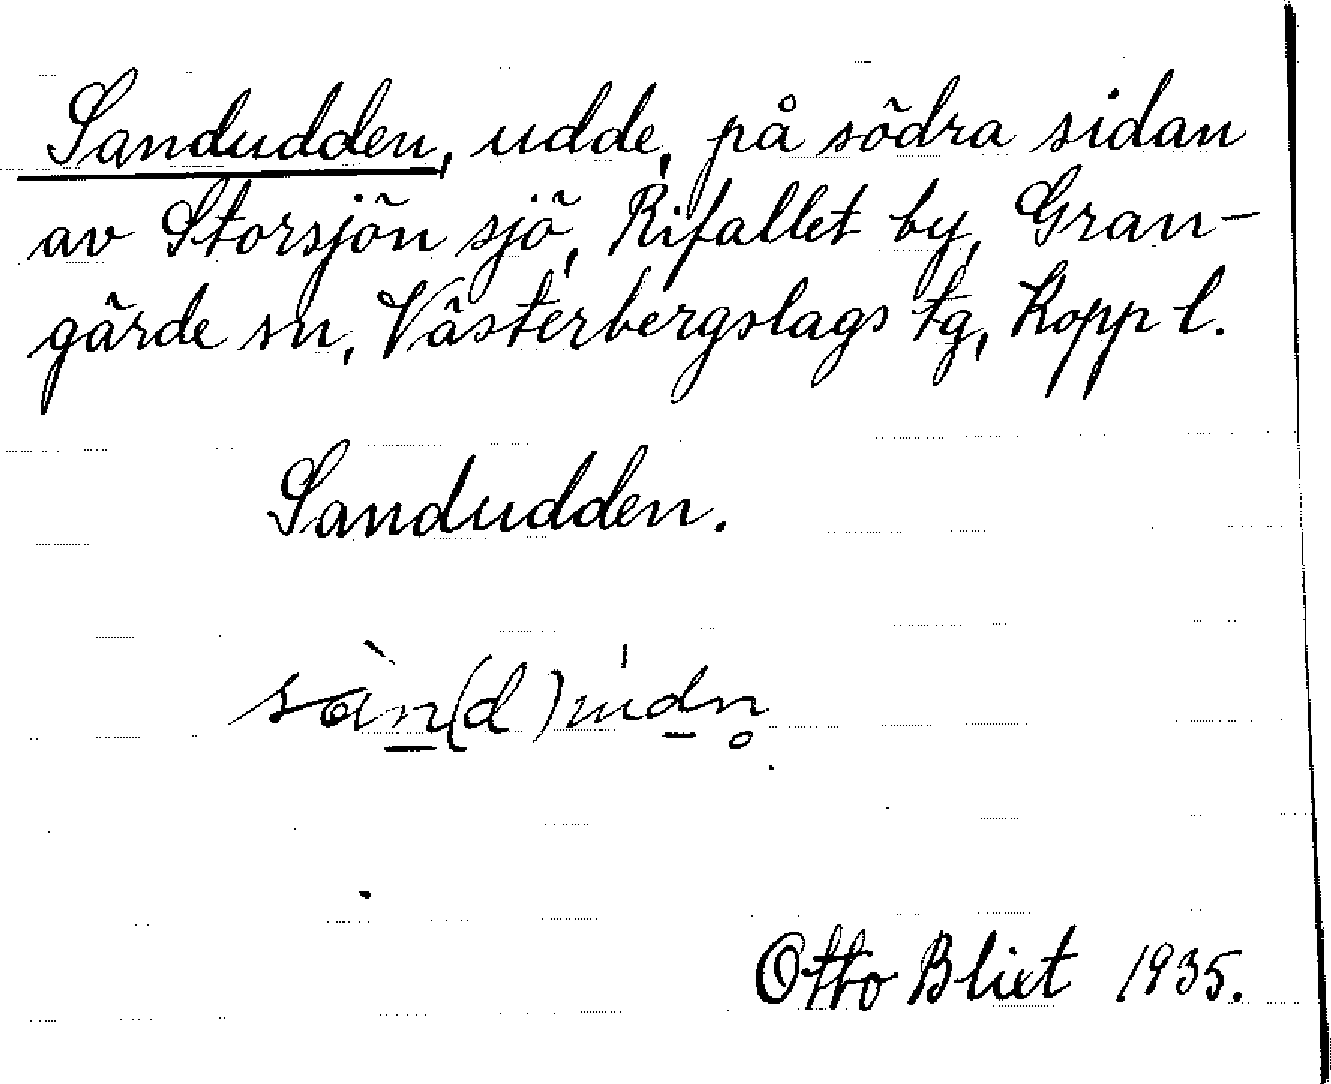 Sandudden, udde, på södra sidan
av Storsjön sjö, Rifallet by, Gran-
gärde sn, Västerbergslags tg, Kopp l.
Sandudden.
sàn(d)ud̲n̥
Otto Blixt 1935.